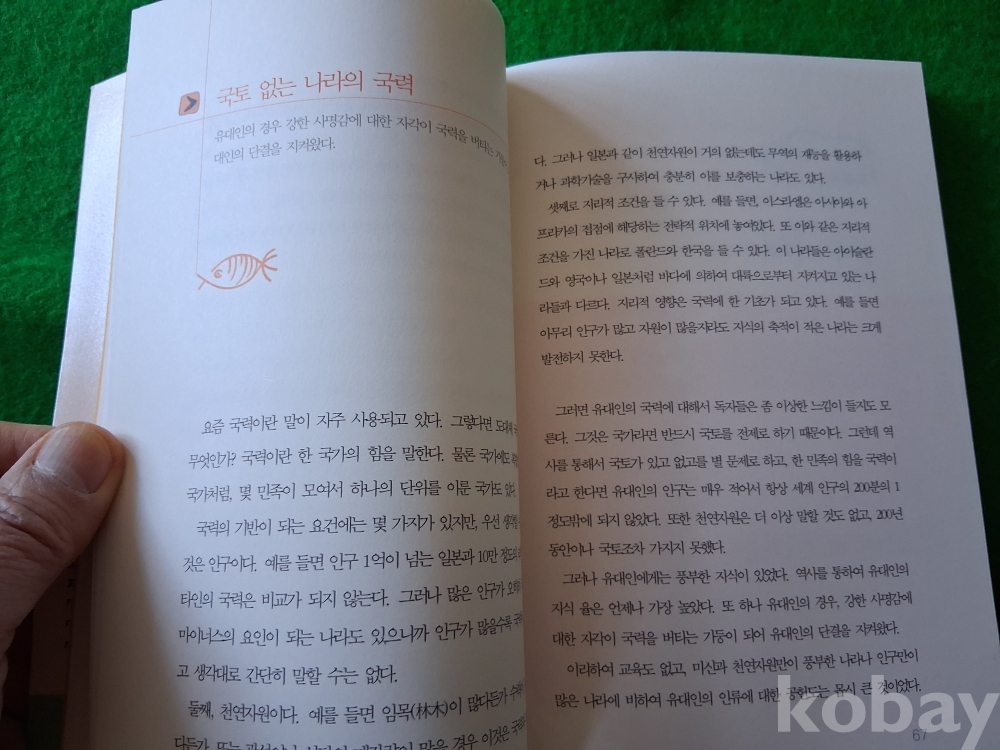 국토 없는 나라의 국력
유대인의 경우 강한 사명감에 대한 자각이 국력을 버티는
대인의 단결을 지켜왔다.
요즘 국력이란 말이 자주 사용되고 있다. 그렇다면 도대체
무엇인가? 국력이란 한 국가의 힘을 말한다. 물론 국가에도
국가처럼, 몇 민족이 모여서 하나의 단위를 이룬 국가도 있다.
국력의 기반이 되는 요건에는 몇 가지가 있지만, 우선
것은 인구이다. 예를 들면 인구 1억이 넘는 일본과 10만 정도의
타인의 국력은 비교가 되지 않는다. 그러나 많은 인구가
마이너스의 요인이 되는 나라도 있으니까 인구가 많을수록
고 생각대로 간단히 말할 수는 없다.
둘째, 천연자원이다. 예를 들면 임목(林木)이 많다든가
다든가, 또는
다. 그러나 일본과 같이 천연자원이 거의 없는데도 무역의 재능을 활용하
거나 과학기술을 구사하여 충분히 이를 보충하는 나라도 있다.
셋째로 지리적 조건을 들 수 있다. 예를 들면, 이스라엘은 아시아와 아
프리카의 접점에 해당하는 전략적 위치에 놓여있다. 또 이와 같은 지리적
조건을 가진 나라로 폴란드와 한국을 들 수 있다. 이 나라들은 아이슬란
드와 영국이나 일본처럼 바다에 의하여 대륙으로부터 지켜지고 있는 나
라들과 다르다. 지리적 영향은 국력에 한 기초가 되고 있다. 예를 들면
아무리 인구가 많고 자원이 많을지라도 지식의 축적이 적은 나라는 크게
발전하지 못한다.
그러면 유대인의 국력에 대해서 독자들은 좀 이상한 느낌이 들지도 모
른다. 그것은 국가라면 반드시 국토를 전제로 하기 때문이다. 그런데 역
사를 통해서 국토가 있고 없고를 별 문제로 하고, 한 민족의 힘을 국력이
라고 한다면 유대인의 인구는 매우 적어서 항상 세계 인구의 200분의 1
정도밖에 되지 않았다. 또한 천연자원은 더 이상 말할 것도 없고, 200년
동안이나 국토조차 가지지 못했다.
그러나 유대인에게는 풍부한 지식이 있었다. 역사를 통하여 유대인의
지식 율은 언제나 가장 높았다. 또 하나 유대인의 경우, 강한 사명감에
대한 자각이 국력을 버티는 기둥이 되어 유대인의 단결을 지켜왔다.
이리하여 교육도 없고, 미신과 천연자원만이 풍부한 나라나 인구만이
많은 나라에 비하여 유대인의 인류에 대한 공헌도는 몹시 큰 것이었다.
67
kobay